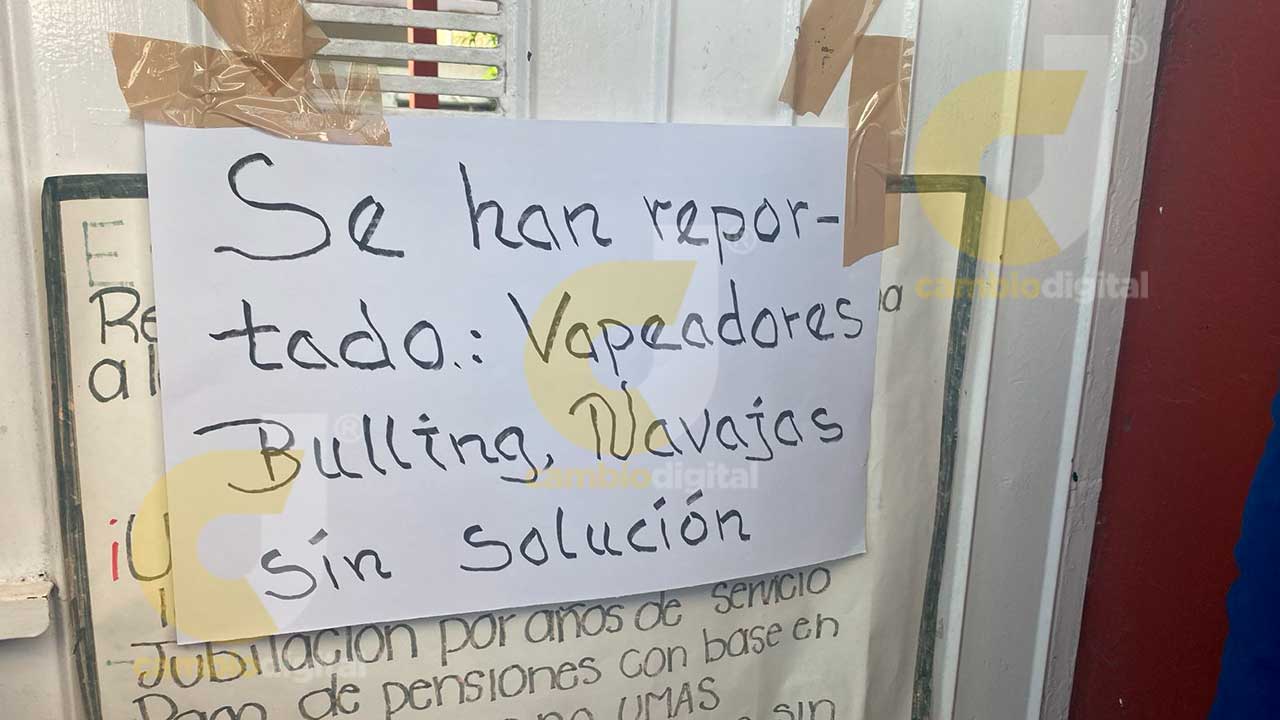 Se han repor-
tado.: Vapeadores
Bulling, Navajas
sin solución
Jubilación por años de servicio
de pensiones con base en
UMAS
sin
cambiodigital
cambiodigital
cambiodigital